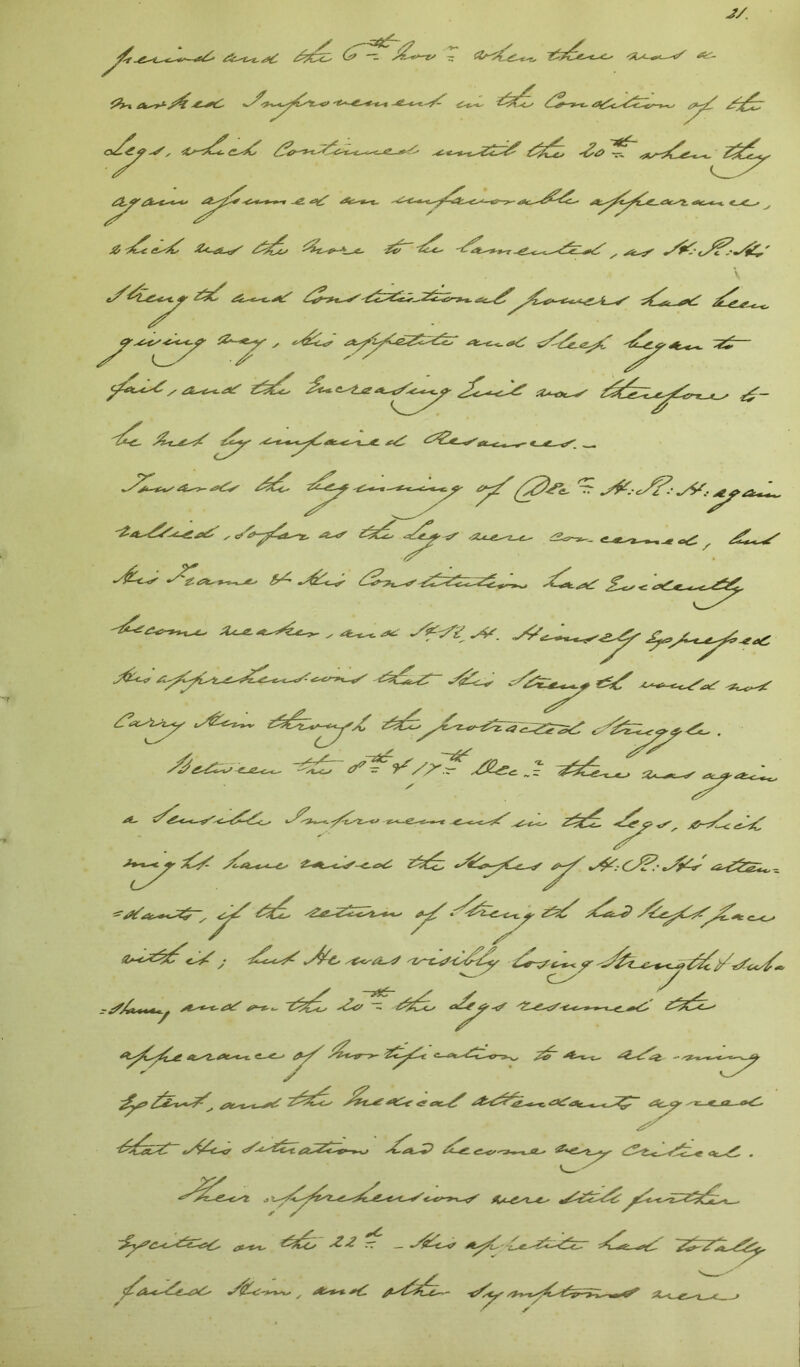 21.
period and the 6th Nov:r when there was a
marked Improvement in the Condition of the
legs, which continued until the 20th when they
again assumed an unfavorable appearance,
which was the more to be lamented, as H:R:H:s'
Strength and Constitutional powers had been
giving way, his appetite and Sleep began to
fail, and the increasing bulk was therefore to
be met by impaired Resources. —
Towards the beginning of Dec:r H:R:H: again
rallied, so far as the legs were concerned, but
His Frame & His Constitution had evidently
become weaker, and H.R.H. Himself expressed
His apprehensions that His Strength would not
Carry Him through the protracted Struggle.
Between the 8th & 17th Dec:r there was again
a sensible Improvement in the legs, which
might have raised the Hopes of H:R:H:s atten=
=dants, if the return of Strength had kept pace
with it; but He was visibly losing Strength & sub=
=stance, and on the 20th the legs resumed the
appearance of mortification to an alarming
Extent, and the medical attendants agreed
that His situation had become very Critical.
Their apprehensions were still further
Excited on the 22d — His appetite had totally
failed Him, and other symptoms were